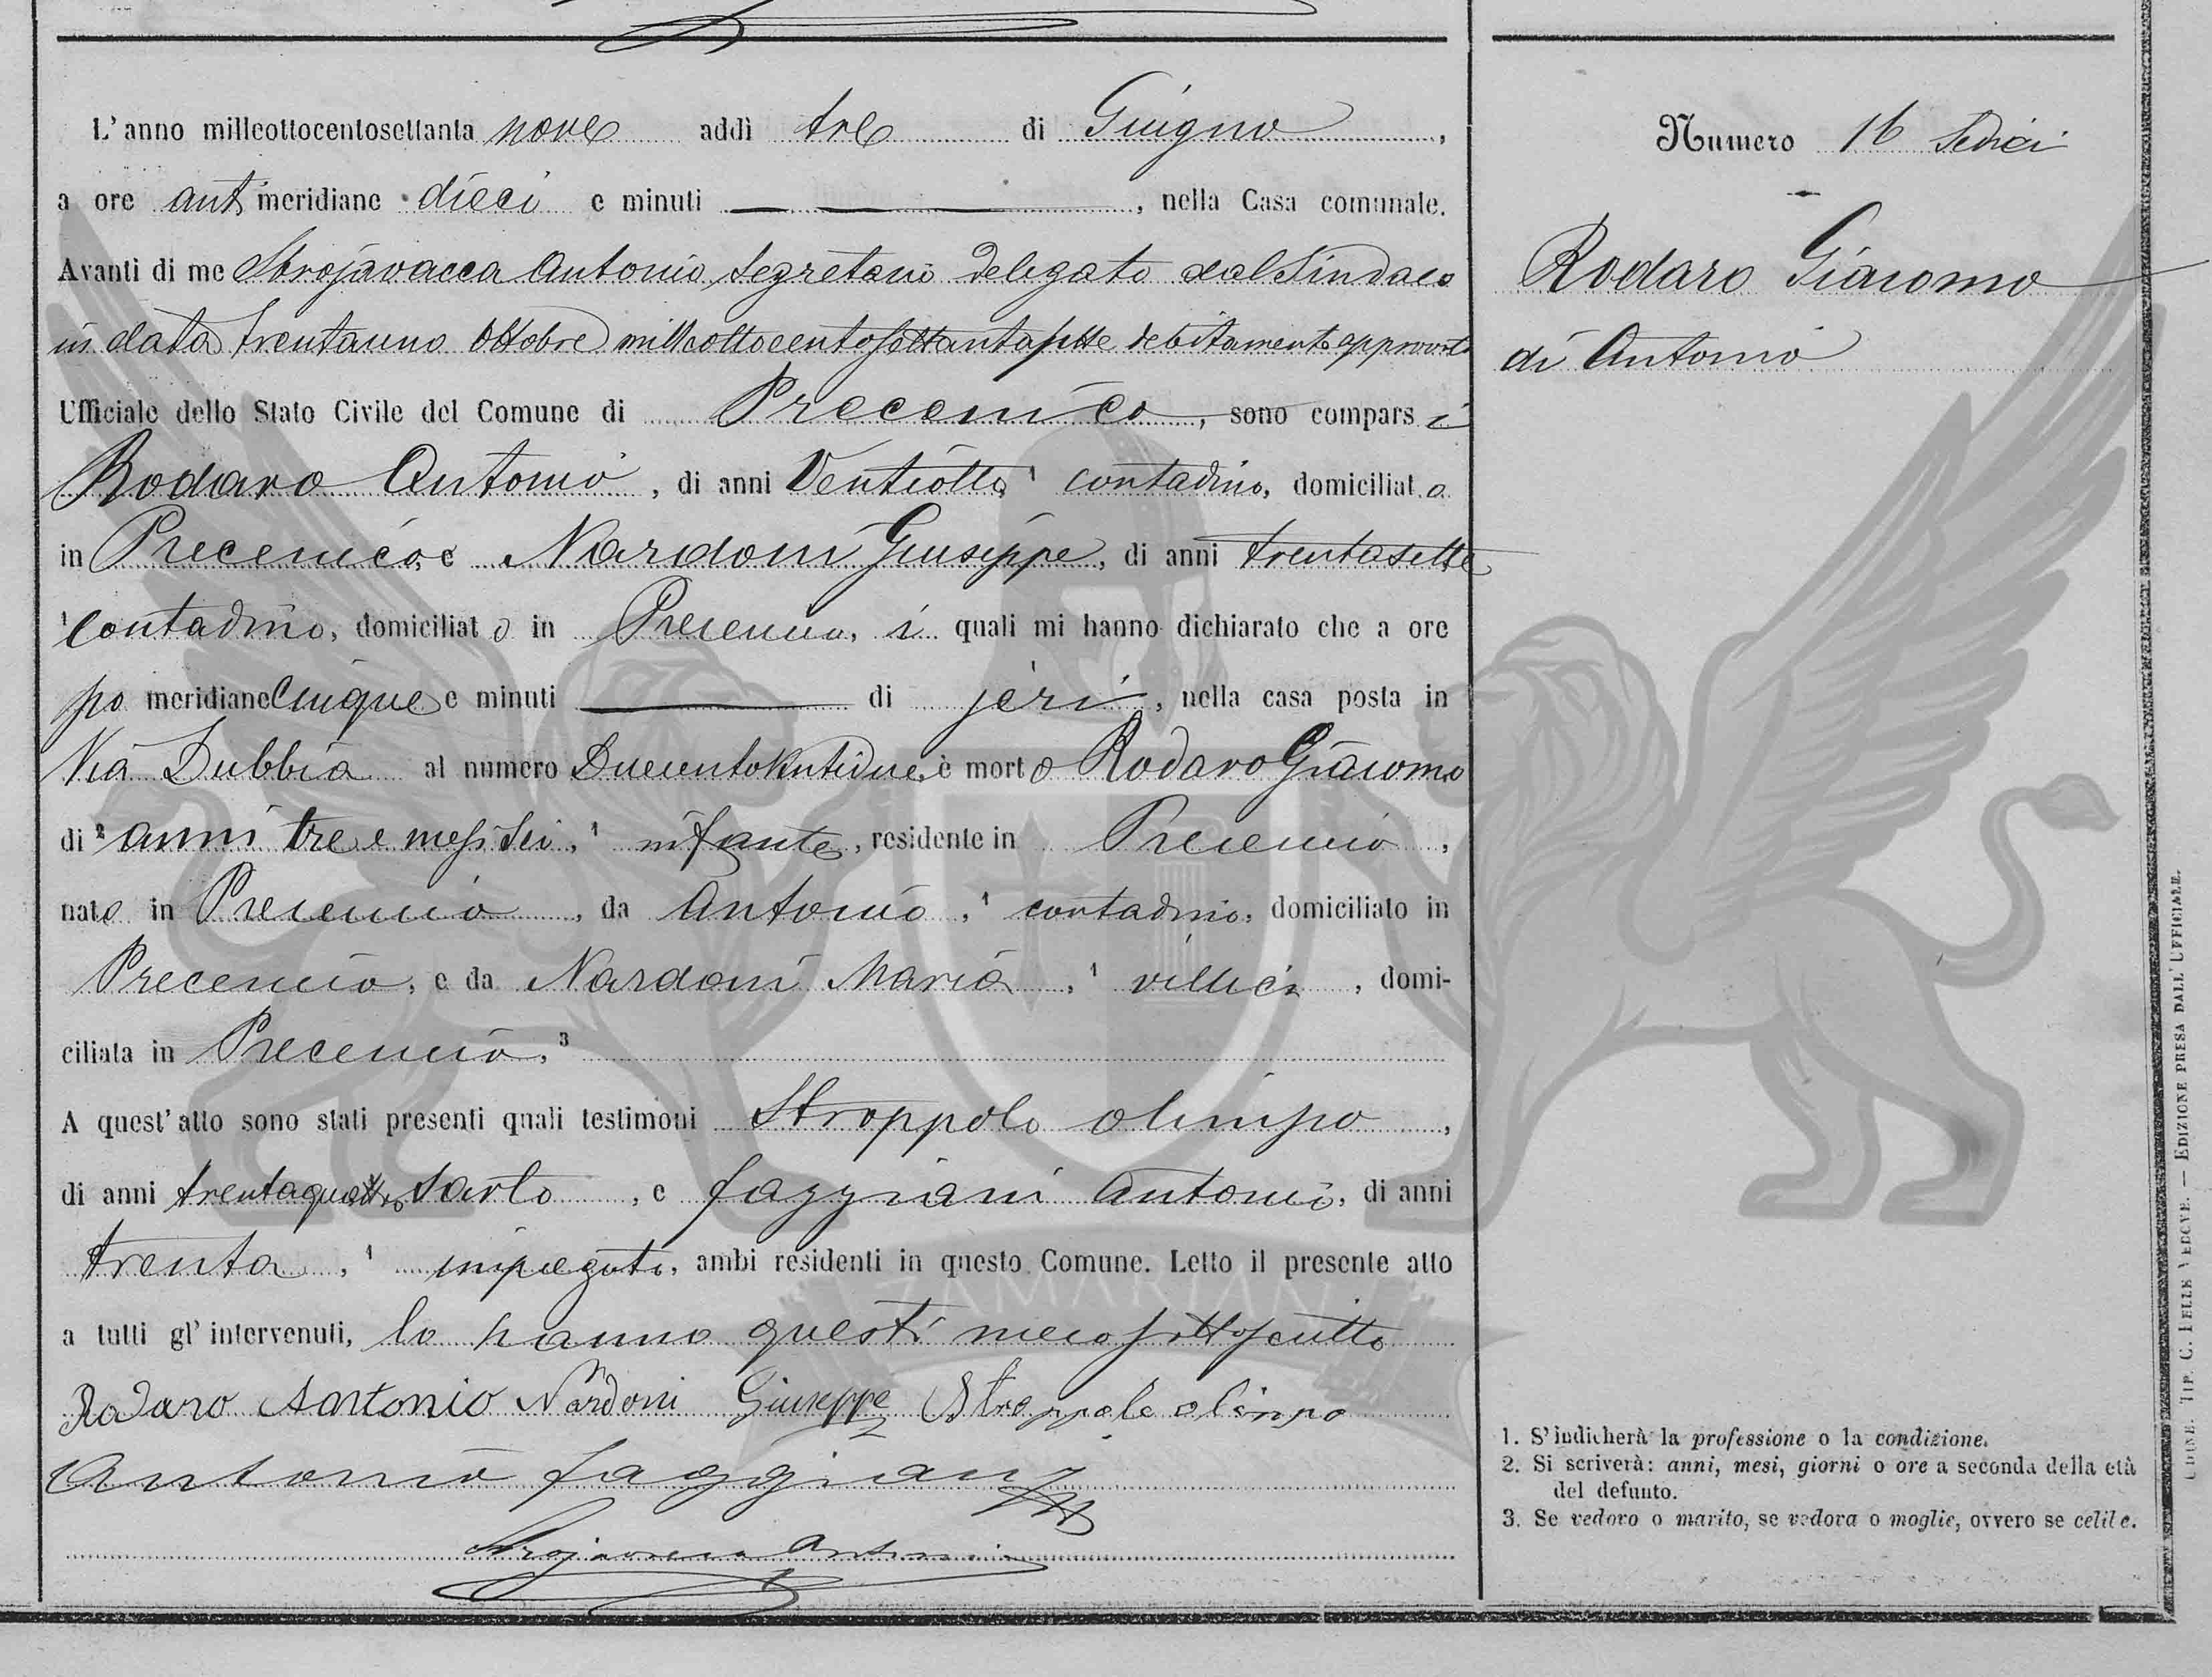 L'anno milleottocentosettanta nove addì tre di Giugno,
a ore ant meridiane dieci e minuti , nella Casa comunale.
Avanti di me Strojavacca Antonio Segretario Delegato dal Sindaco
in data trentauno Ottobre milleottocentosettantasette debitamente approvato
Ufficiale dello Stato Civile del Comune di Precenico, sono compars i
Rodaro Antonio, di anni Ventiotto, 1 contadino, domiciliat o
in Precenico, e Nardoni Giuseppe, di anni trentasette
1 contadino, domiciliat o in Precenico, i quali mi hanno dichiarato che a ore
po meridiane Cinque e minuti di jeri, nella casa posta in
Via Dubbia al numero Duecentoventidue, è mort o Rodaro Giacomo
di 2 anni tre e mesi sei, 1 infante, residente in Precenico,
nato in Precenico, da Antonio, 1 contadino, domiciliato in
Precenico, e da Nardoni Maria, 1 villica, domi-
ciliata in Precenico, 3
A quest'atto sono stati presenti quali testimoni Stroppolo Olimpo,
di anni trentaquattro, Sarto, e Faggiani Antonio, di anni
trenta, 1 impiegato, ambi residenti in questo Comune. Letto il presente atto
a tutti gl'intervenuti, lo hanno questi meco sottoscritto
Rodaro Antonio Nardoni Giuseppe Stroppolo Olimpo
Antonio Faggiani
Strojavacca Antonio
Numero 16 Sedici
Rodaro Giacomo
di Antonio
1. S'indicherà la professione o la condizione.
2. Si scriverà: anni, mesi, giorni o ore a seconda della età
del defunto.
3. Se vedovo o marito, se vedova o moglie, ovvero se celibe.
UDINE. TIP. C. DELLE VEDOVE. — EDIZIONE PRESA DALL'UFFICIALE.